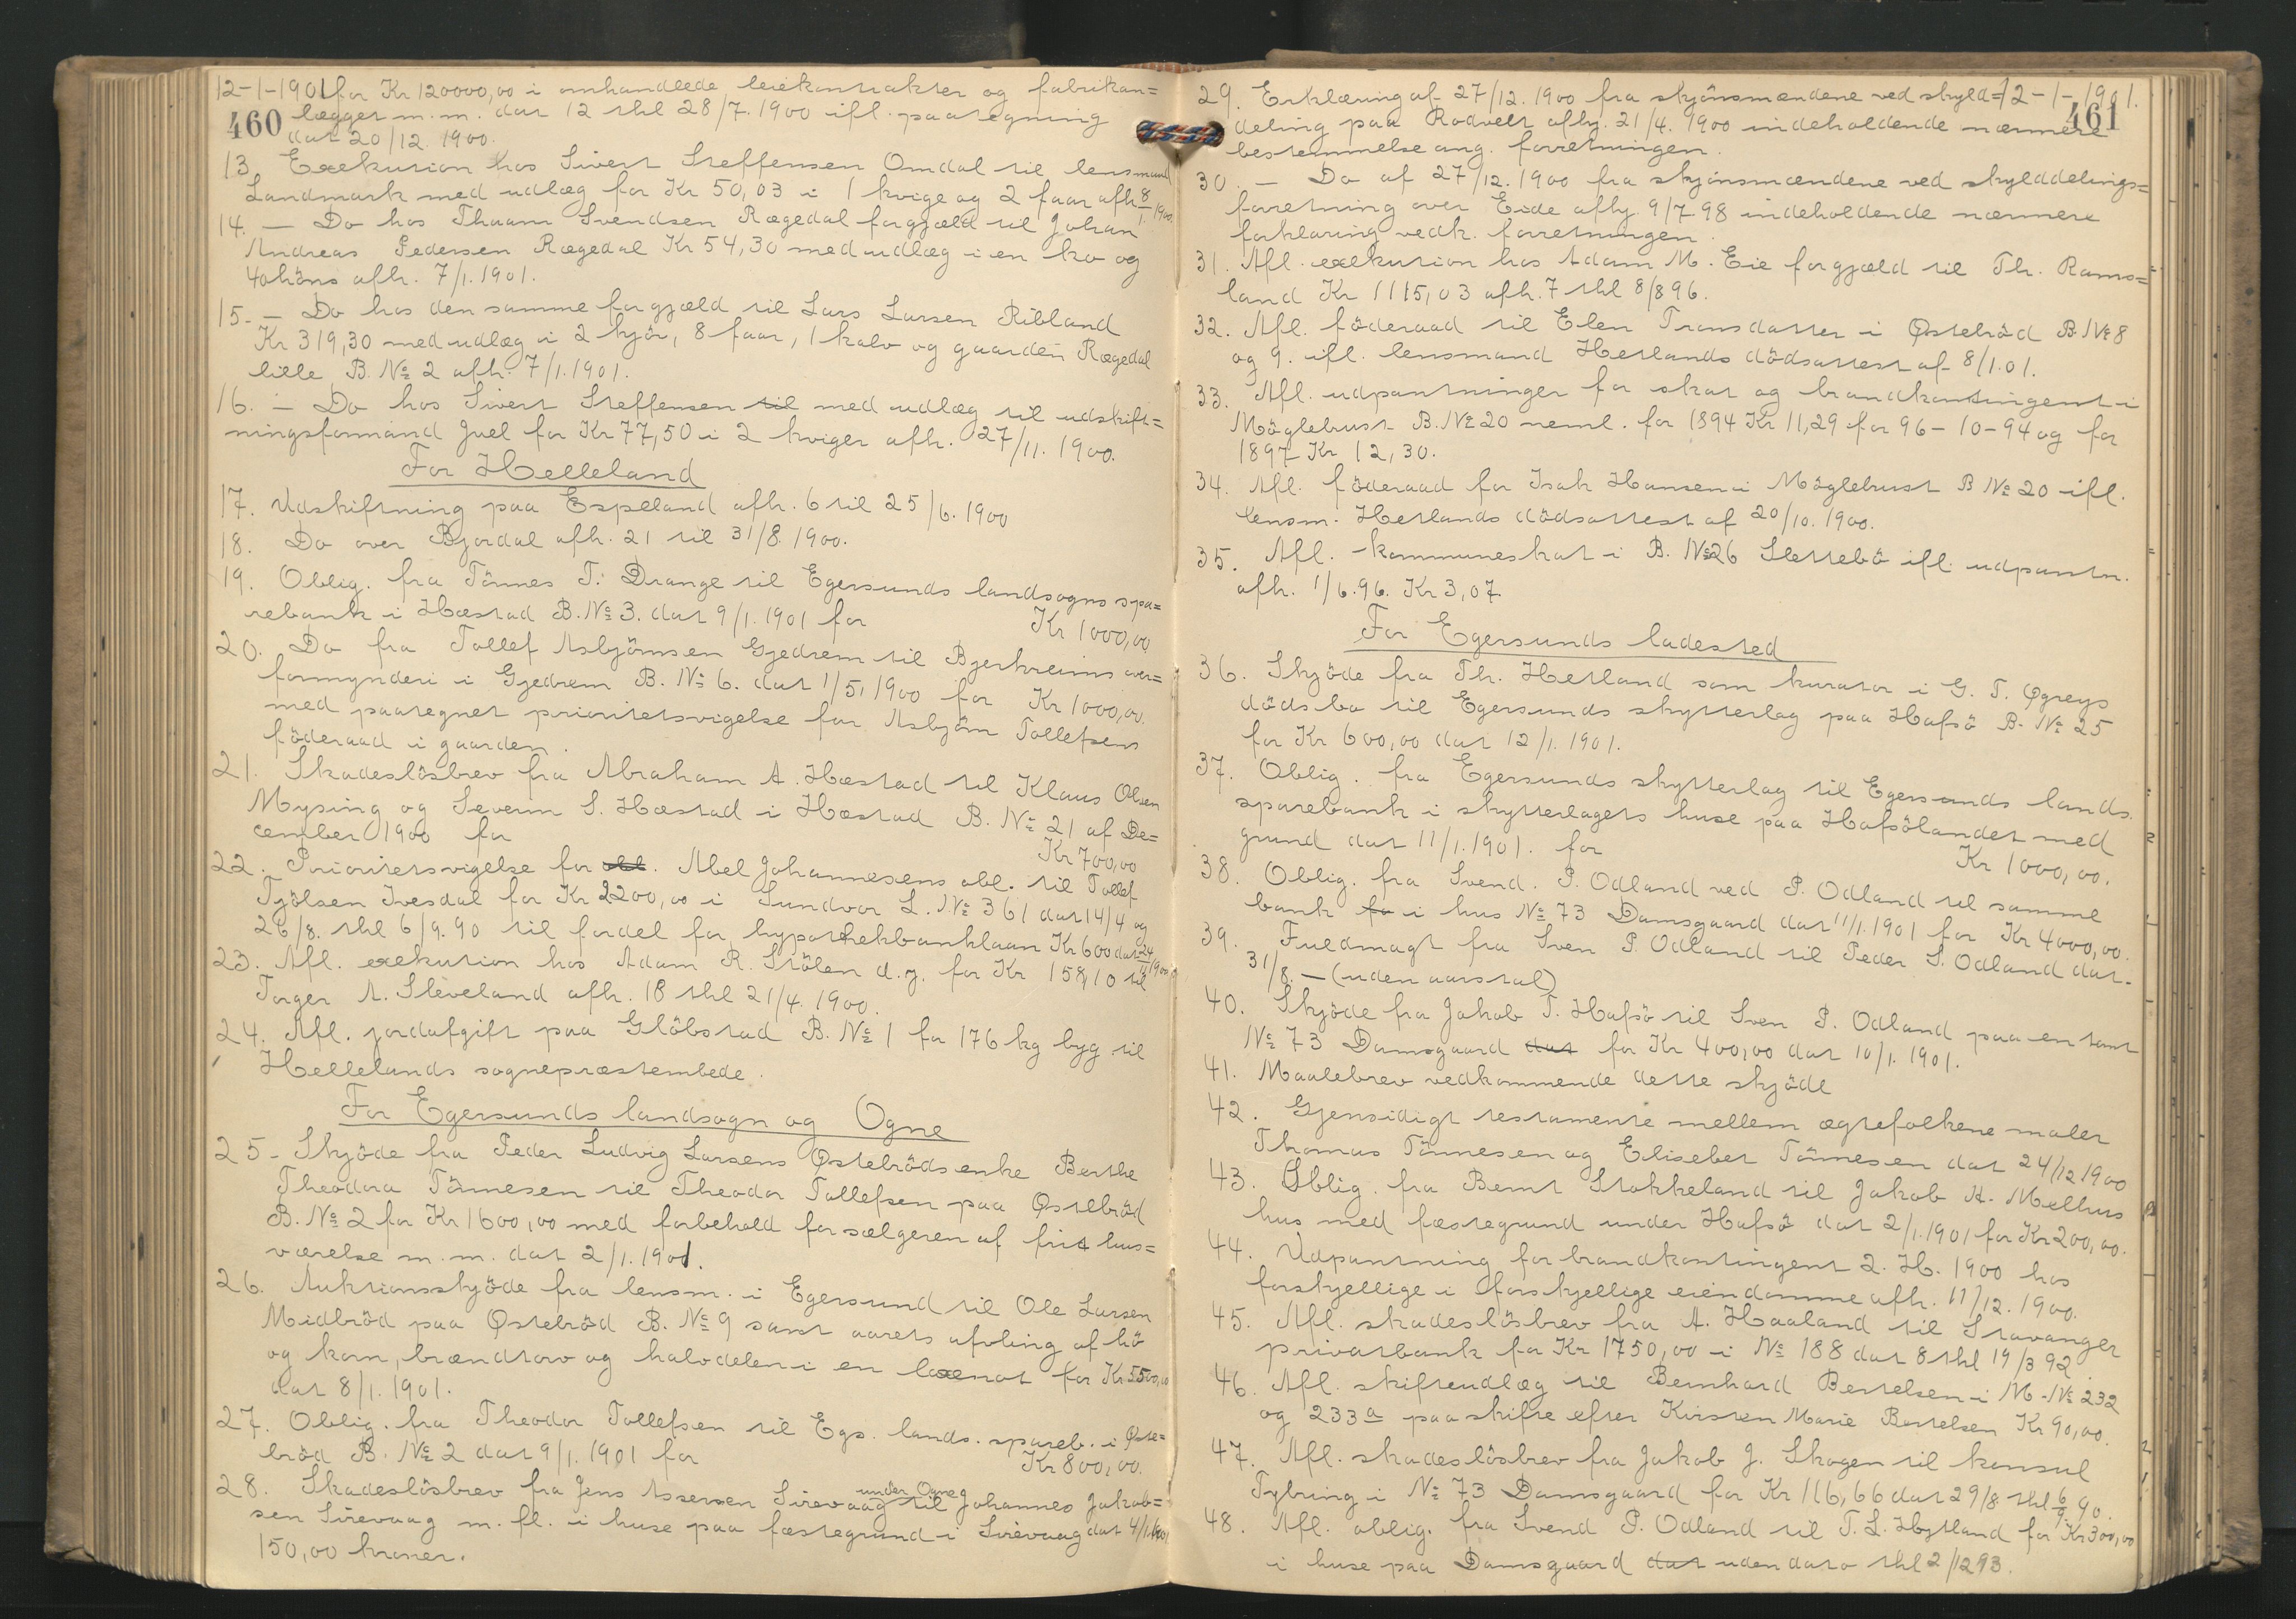 12-1-1901 for Kr 120000,00 i omhandlede leiekontrakter og fabrikan=
460 lægget m.m. dat 12 thl 28/7.1900 ifl. paategning
dat 20/12.1900.
13. Exekution hos Sivert Steffensen Omdal til lensmand
Landmark med udlæg for Kr 50,03 i 1 kvige og 2 faar afh. 8/1.1900.
14. — Do hos Thaam Svendsen Rægedal for gjæld til Johan
Andreas Pedersen Rægedal Kr 54,30 med udlæg i en ko og
40 höns afh. 7/1.1901.
15. — Do hos den samme for gjæld til Lars Larsen Ribland
Kr 319,30 med udlæg i 2 kjör, 8 faar, 1 kalv og gaarden Rægedal
lille B. № 2 afh. 7/1.1901.
16. — Do hos Sivert Steffensen til med udlæg til udskift=
ningsformand Juel for Kr 77,50 i 2 kviger afh. 27/11.1900.
For Helleland
17. Udskiftning paa Espeland afh. 6 til 25/6.1900
18. Do over Bjordal afh. 21 til 31/8.1900.
19. Oblig. fra Tönnes T. Drange til Egersunds landsogns spa=
rebank i Hæstad B. № 3. dat 9/1.1901 for Kr 1000,00
20. Do fra Tollef Asbjörnsen Gjedrem til Bjerkreims over=
formynderi i Gjedrem B. № 6. dat 1/5.1900 for Kr 1000,00.
med paategnet prioritetsvigelse for Asbjörn Tollefsens
föderaad i gaarden.
21. Skadeslösbrev fra Abraham A. Hæstad til Klaus Olsen
Mysing og Severin S. Hæstad i Hæstad B. № 21 af De=
cember 1900 for Kr 700,00
22. Prioritetsvigelse for obl. Abel Johannesens obl. til Tollef
Tjölsen Ivesdal for Kr 2200,00 i Sundvor L. № 361 dat 14/4 og
26/8. thl 6/9.90 til fordel for hypothekbanklaan Kr 600 dat 24/11 1900
23. Afl. exekution hos Adam R. Stölen d.y. for Kr 158,10 til
Torger A. Sleveland afh. 18 thl 21/4.1900.
24. Afl. jordafgift paa Glöbstad B. № 1 for 176 kg byg til
Hellelands sognepræstembede.
For Egersunds landsogn og Ogne
25. Skjöde fra Peder Ludvig Larsens Østebröds enke Berthe
Theodora Tönnesen til Theodor Tollefsen paa Østebröd
B. № 2 for Kr 1600,00 med forbehold for sælgeren af frit hus=
værelse m.m. dat 2/1.1901.
26. Auktionsskjöde fra lensm. i Egersund til Ole Larsen
Midbröd paa Østebröd B. № 9 samt aarets afvling af hö
og korn, brændtorv og halvdelen i en laxenot for Kr 5500,00
dat 8/1.1901.
27. Oblig. fra Theodor Tollefsen til Egs. lands. spareb. i Øste=
bröd B. № 2 dat 9/1.1901 for Kr 800,00.
28. Skadeslösbrev fra Jens Assersen Sirevaag under Ogne til Johannes Jakob=
sen Sirevaag m.fl. i huse paa fæstegrund i Sirevaag dat 4/1.1901
150,00 kroner.
12-1-1901.
461
29. Erklæring af 27/12.1900 fra skjönsmændene ved skyld=
deling paa Rodvelt afhj. 21/4.1900 indeholdende nærmere
bestemmelse ang. forretningen.
30. — Do af 27/12.1900 fra skjönsmændene ved skylddelings=
forretning over Eide afhj. 9/7 98 indeholdende nærmere
forklaring vedk. forretningen.
31. Afl. exekution hos Adam M. Eie for gjæld til Th. Rams=
land Kr 1115,03 afh. 7 thl 8/8 96.
32. Afl. föderaad til Elen Transdatter i Østebröd B. № 8
og 9. ifl. lensmand Hetlands dödsattest af 8/1.01.
33. Afl. udpantninger for skat og brandkontingent i
Möglebust B. № 20 neml. for 1894 Kr 11,29 for 96 - 10-94 og for
1897 Kr 12,30.
34. Afl. föderaad for Isak Hansen i Möglebust B № 20 ifl.
lensm. Hetlands dödsattest af 20/10.1900.
35. Afl. kommuneskat i B. № 26 Slettebö ifl. udpantn.
afh. 1/6.96. Kr 3,07
For Egersunds ladested
36. Skjöde fra Th. Hetland som kurator i G. T. Øgreys
dödsbo til Egersunds skytterlag paa Hafsö B. № 25
for Kr 600,00 dat 12/1.1901.
37. Oblig. fra Egersunds skytterlag til Egersunds lands.
sparebank i skytterlagets huse paa Hafsölandet med
grund dat 11/1.1901. for Kr 1000,00.
38. Oblig. fra Svend. P. Odland ved P. Odland til samme
bank fo i hus № 73 Damsgaard dat 11/1.1901 for Kr 4000,00.
39. Fuldmagt fra Sven P Odland til Peder S. Odland dat.
31/8. — (uden aarstal)
40. Skjöde fra Jakob T. Hafsö til Sven P. Odland paa en tomt
№ 73 Damsgaard dat for Kr 400,00 dat 10/1.1901.
41. Maalebrev vedkommende dette skjöde
42. Gjensidigt testamente mellem ægtefolkene maler
Thomas Tönnesen og Elisebet Tönnesen dat 24/12 1900
43. Oblig. fra Bernt Stokkeland til Jakob A. Mælhus
hus med fæstegrund under Hafsö dat 2/1.1901 for Kr 200,00.
44. Udpantning for brandkontingent 2. H. 1900 hos
forskjellige i forskjellige eiendomme afh. 11/12.1900.
45. Afl. skadeslösbrev fra A. Haaland til Stavanger
privatbank for Kr 1750,00 i № 188 dat 8 thl 19/3 92.
46. Afl. skifteudlæg til Bernhard Bertelsen i M. № 232
og 233a paa skifte efter Kirsten Marie Bertelsen Kr 90,00.
47. Afl. skadeslösbrev fra Jakob J. Skogen til konsul
Tybring i № 73 Damsgaard for Kr 116,66 dat 29/8 thl 6/9 90.
48. Afl. oblig. fra Svend P. Odland til T. S. Hytland for Kr 300,00
i huse paa Damsgaard dat uden dato thl 2/12 93.